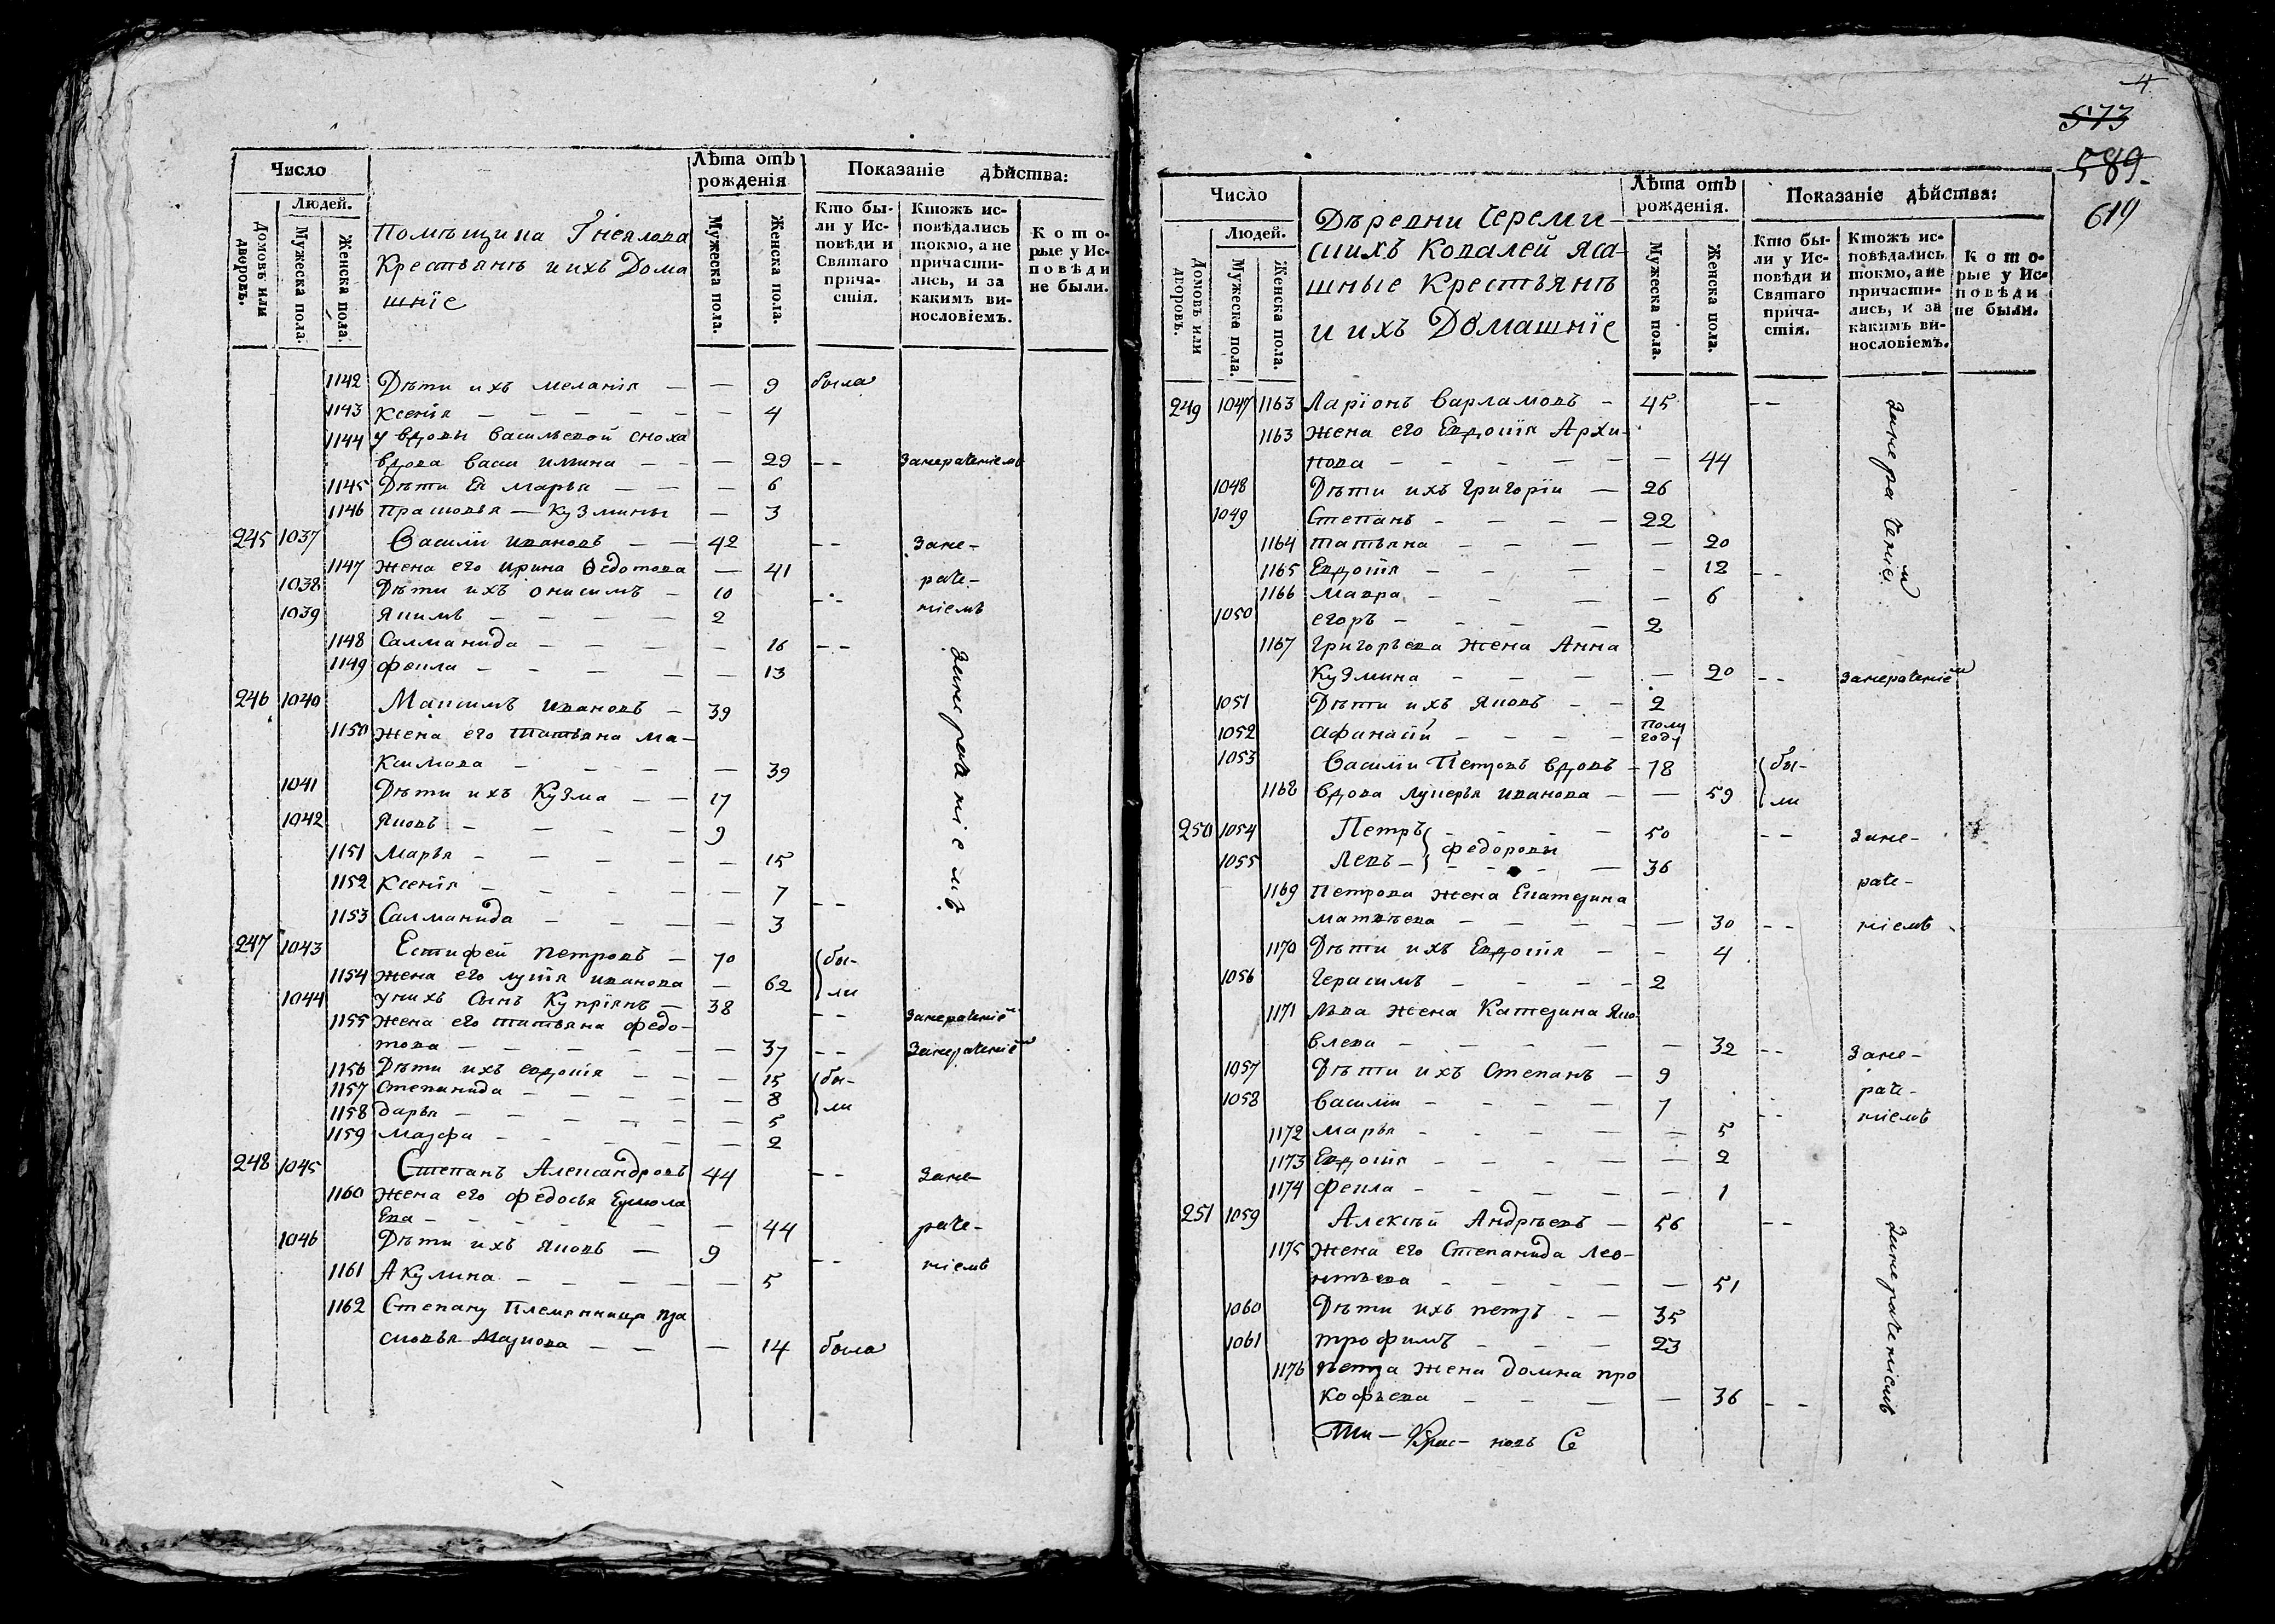 Число
Людей.
Домовъ или дворовъ.
Мужеска пола.
Женска пола.
Помѣщика Гнеялова
Крестьянъ и ихъ Дома
шнїе
Лѣта отъ рожденія
Мужеска пола.
Женска пола.
Показаніе дѣйства:
Кто бы-
ли у Ис-
повѣди и
Святаго
прича-
стія.
Ктожъ ис-
повѣдались
токмо, а не
причасти-
лись, и за
какимъ ви-
нословіемъ.
Кото-
рые у Ис-
повѣди
не были.
1142 Дѣти ихъ меланія — — 9 была
1143 Ксенія — — — — — — 4
1144 у вдовы васильевой сноха
вдова васи лиина — — — 29 – – занераченіемъ
1145 Дѣти Ея марья — — — 6
1146 прасковья — Кузмины — 3
245 1037 Василіи ивановъ — — 42 – – Зане-
1147 жена его ирина Ѳедотова — 41 раче-
1038 Дѣти ихъ онисимъ — 10 – – ніемъ
1039 Якимъ — — — — 2
1148 Салманида — — — — 16 – –
1149 фекла — — — — — 13
занераченіемъ
246 1040 Максимъ ивановъ — 39
1150 жена его татьяна ма-
ксимова — — — — — 39
1041 Дѣти ихъ Кузма — — 17
1042 Яковъ — — — — 9
1151 Марья — — — — — — 15
1152 Ксенія — — — — — — 7 – –
1153 Салманида — — — — 3
247 1043 Естифей петровъ — 70 бы-
1154 жена его лукія иванова — 62 ли
1044 у нихъ сынъ Купріянъ — 38 – – занераченіемъ
1155 жена его татьяна федо-
това — — — — — — 37 – – Занераченіемъ
1156 Дѣти ихъ евдокія — — — 15 бы-
1157 степанида — — — — — 8 ли
1158 дарья — — — — — — 5
1159 марфа — — — — — 2
248 1045 Степанъ Александровъ 44 – – Зане-
1160 жена его федосья Ермола
Ева — — — — — — 44 раче-
1046 Дѣти ихъ яковъ — 9 – – ніемъ
1161 Акулина — — — — — 5
1162 Степану племянница пра
сковья Маркова — — — 14 была
4
573
589
619
Число
Людей.
Домовъ или дворовъ.
Мужеска пола.
Женска пола.
Дѣревни Череми-
скихъ Ковалей яса-
шные Крестьянъ
и ихъ Домашнїе
Лѣта отъ рожденія.
Мужеска пола.
Женска пола.
Показаніе дѣйства:
Кто бы-
ли у Ис-
повѣди и
Святаго
прича-
стія.
Ктожъ ис-
повѣдались
токмо, а не
причасти-
лись, и за
какимъ ви-
нословіемъ.
Кото-
рые у Ис-
повѣди
не были.
249 1047 1163 Ларїонъ Варламовъ — 45 – –
1163 жена его Евдокїя Архи-
пова — — — — — — 44
1048 Дѣти ихъ григорїи — 26
1049 Степанъ — — — — 22
1164 татьяна — — — — 20
1165 Евдокія — — — — 12 – –
1166 Мавра — — — — 6
1050 егоръ — — — — 2
занераченіемъ
1167 григорьева жена Анна
Кузмина — — — — — 20 – – занераченіемъ
1051 Дѣти ихъ яковъ — — 2
1052 афанасіи — — — — полу
году
1053 Василіи Петровъ вдовъ — 78 бы-
1168 вдова лукерья иванова — — 59 ли
250 1054 Петръ — — — — 50 – – Зане-
федоровы
1055 Левъ — — — — 36
1169 петрова жена Екатерина раче-
матвѣева — — — — — 30 – – ніемъ
1170 Дѣти ихъ Евдокія — — 4
1056 герасимъ — — — — 2
1171 лва жена Катерина Яко
влева — — — — — — 32 – – Зане-
1057 Дѣти ихъ Степанъ — 9 раче-
1058 василіи — — — — 7 – – ніемъ
1172 марья — — — — — 5
1173 Евдокія — — — — — 2
1174 фекла — — — — — 1
251 1059 Алексѣй Андрѣевъ — 56 – –
1175 жена его Степанида лео-
нтьева — — — — — 51
1060 Дѣти ихъ петръ — — 35
1061 трофимъ — — — 23
1176 петра жена домна про
кофьева — — — — — 36 – –
занераченіемъ